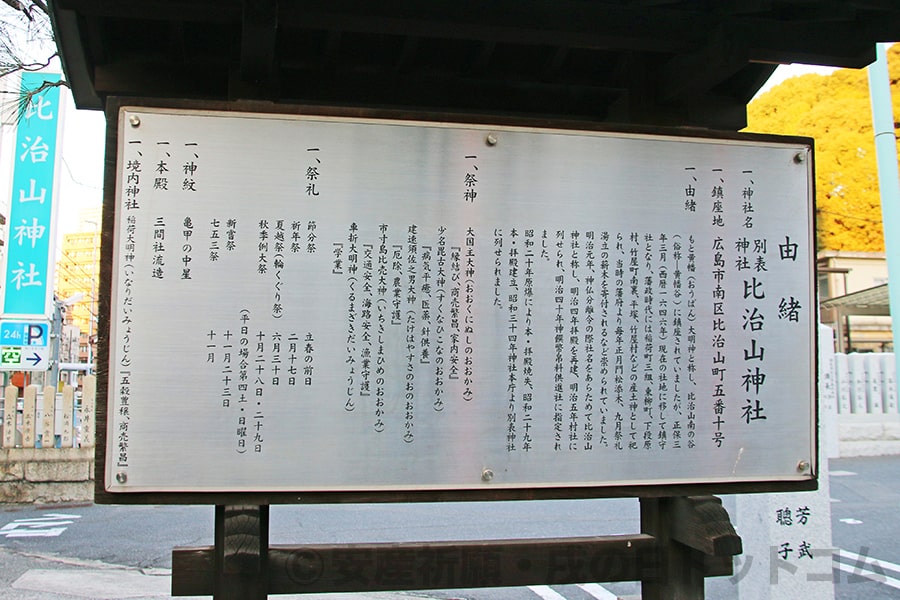 由緒
一、神社名 別表神社 比治山神社
一、鎮座地 広島市南区比治山町五番十号
一、由緒
もと黄幡（おうばん）大明神と称し、比治山南の谷
（俗称・黄幡谷）に鎮座されていましたが、正保三
年三月（西暦一六四六年）現在の社地に移して鎮守
社となり、藩政時代には稲荷町三組、東柳町、下段原
村、竹屋町南裏、平塚、竹屋村などの産土神として祀
られ、当時の藩府より毎年正月門松添木、九月祭礼
湯立の薪木を寄付されるなど崇められていました。
明治元年、神仏分離令の際社名をあらためて比治山
神社と称し、明治四年拝殿を再建、明治五年村社に
列せられ、明治四十年神饌幣帛料供進社に指定され
ました。
昭和二十年原爆により本・拝殿焼失、昭和二十九年
本・拝殿建立、昭和三十四年神社本庁より別表神社
に列せられました。
一、祭神
大国主大神（おおくにぬしのおおかみ）
『縁結び、商売繁昌、家内安全』
少名毘古大神（すくなひこなのおおかみ）
『病気平癒、医薬、針供養』
建速須佐之男大神（たけはやすさのおのおおかみ）
『厄除、農業守護』
市寸島比売大神（いちきしまひめのおおかみ）
『交通安全、海路安全、漁業守護』
車折大明神（くるまざきだいみょうじん）
『学業』
一、祭礼
節分祭 立春の前日
祈年祭 二月十七日
夏越祭（輪くぐり祭） 六月三十日
秋季例大祭 十月二十八日・二十九日
（平日の場合第四土・日曜日）
新嘗祭 十一月二十三日
七五三祭 十一月
一、神紋 亀甲の中星
一、本殿 三間社流造
一、境内神社 稲荷大明神（いなりだいみょうじん）『五穀豊穣、商売繁昌』
比治山神社
24h P
芳武
聰子
© 安産祈願・戌の日ドットコム